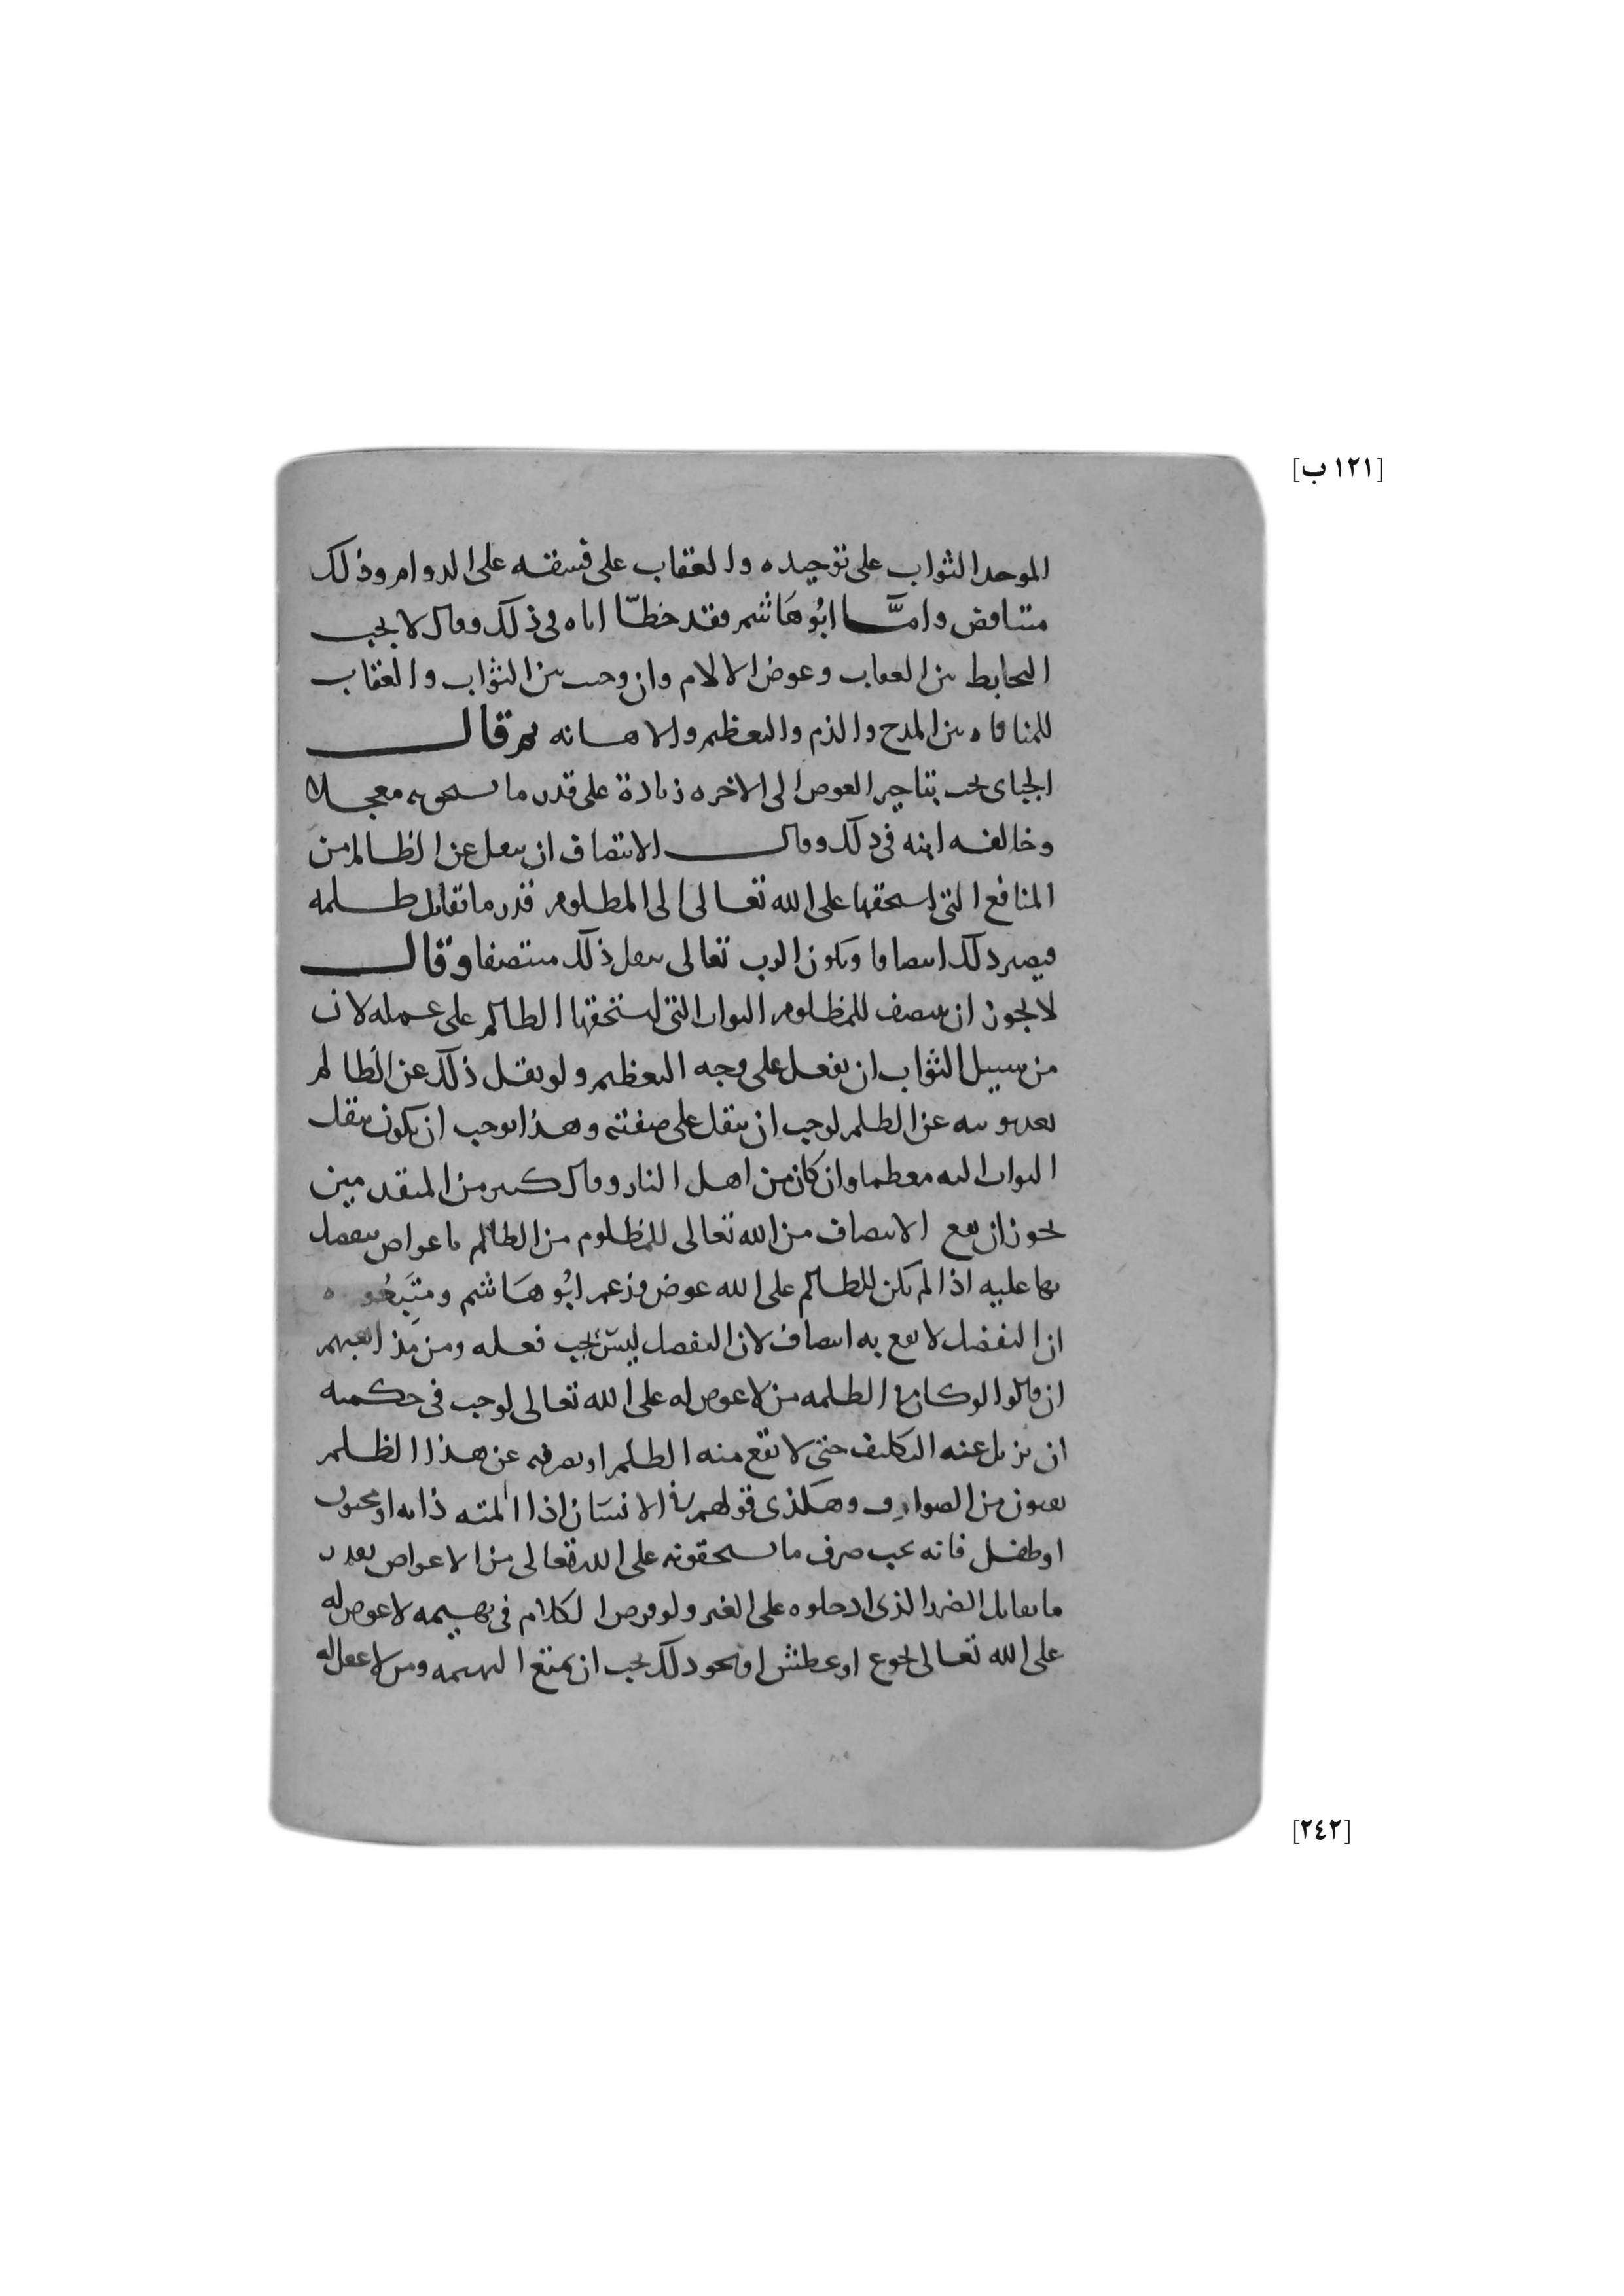 [١٢١ ب]
الموحد الثواب على توحيده والعقاب على فسقه على الدوام وذلك
متناقض وامَّا ابُو هَاشم فقد خطّا اباه في ذلك وقال لا يجب
التحابط بين العقاب وعوض الالام وان وجب بين الثواب والعقاب
للمنافاه بين المدح والذم والتعظيم والاهانه ثم قال
الجباي يجب بتاخير العوض الى الاخره زيادة على قدر ما يستحق به معجلا
وخالفه ابنه في ذلك وقال الانتصاف ان ينقل عن الظالم من
المنافع التي يستحقها على الله تعالى الى المظلوم قدر ما تقابل ظلمه
فيصير ذلك انتصافا ويكون الرب تعالى بنقل ذلك منتصفا وقال
لا يجوز ان ينتصف للمظلوم الثواب التي يستحقها الظالم على عمله لان
من سبيل الثواب ان يفعل على وجه التعظيم ولو نقل ذلك عن الظالم
بعد توبته عن الظلم لوجب ان ينقل على صفته وهذا يوجب ان يكون ينقل
الثواب اليه معظما وان كان من اهل النار وقال كثير من المتقدمين
يجوز ان يقع الانتصاف من الله تعالى للمظلوم من الظالم باعواض يتفضل
بها عليه اذا لم يكن للظالم على الله عوض فزعم ابُو هَاشم ومتبعُوه
ان التفضل لا يقع به انتصاف لان التفضل ليس يجب فعله ومن مذاهبهم
ان قالوا لو كان في الظلمه من لا عوض له على الله تعالى لوجب في حكمته
ان يزيل عنه التكليف حتى لا تقع منه الظلم او يصرفه عن هذا الظلم
بفنون من الصوارف وهكذى قولهم في الانسان اذا المته دابه او مجنون
او طفل فانه يجب صرف ما يستحقونه على الله تعالى من الاعواض بقدر
ما يقابل الضرر الذي ادخلوه على الغير ولو فرض الكلام في بهيمه لا عوض له
على الله تعالى لجوع او عطش او نحو ذلك يجب ان يمنع البهيمه ومن لا عقل له
[٢٤٢]